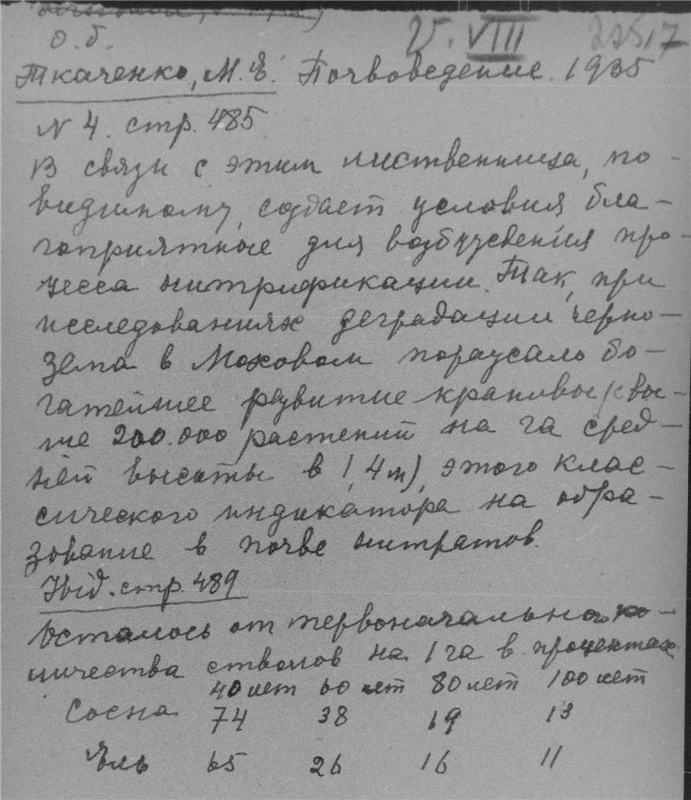 о. б.
25. VIII 22517
Ткаченко, М. Е. Почвоведение. 1935
N 4. стр. 485
В связи с этим лиственница, по-
видимому, создает условия бла-
гоприятные для возбуждения про-
цесса нитрификации. Так, при
исследованиях деградации черно-
зема в Моховом поражало бо-
гатейшее развитие крапивы (свы-
ше 200.000 растений на га сред-
ней высоты в 1,4 м), этого клас-
сического индикатора на обра-
зование в почве нитратов.
Ibid. стр. 489
Осталось от первоначального ко-
личества стволов на 1 га в процентах
40 лет 60 лет 80 лет 100 лет
Сосна 74 38 19 13
Ель 65 26 16 11